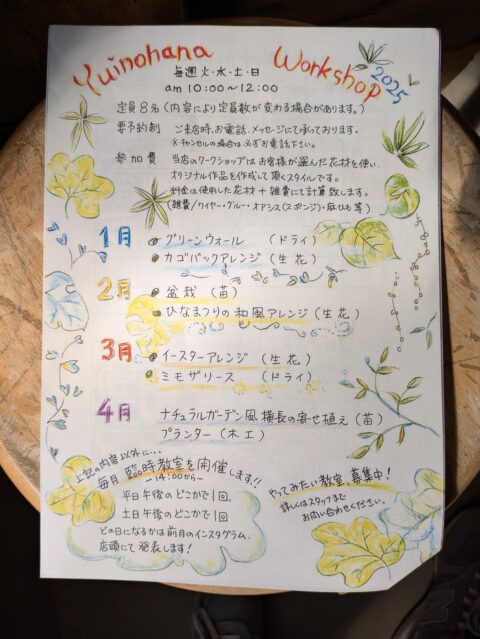 Yuinohana Workshop 2025
毎週火・水・土・日
am 10:00〜12:00
定員8名(内容により定員数が変わる場合があります。)
要予約制 ご来店時、お電話、メッセージにて承っております。
※キャンセルの場合は必ずお電話下さい。
参加費 当店のワークショップはお客様が選んだ花材を使い、
オリジナル作品を作成して頂くスタイルです。
料金は使用した花材+雑費にて計算致します。
(雑費/ワイヤー・グルー・オアシス(スポンジ)・麻ひも等)
1月 グリーンウォール (ドライ)
カゴバックアレンジ (生花)
2月 盆栽 (苗)
ひなまつりの和風アレンジ (生花)
3月 イースターアレンジ (生花)
ミモザリース (ドライ)
4月 ナチュラルガーデン風 横長の寄せ植え (苗)
プランター (木工)
上記の内容以外に…
毎月 臨時教室を開催します!!
―14:00から―
平日午後のどこかで1回、
土日午後のどこかで1回
どの日になるかは前月のインスタグラム、
店頭にて発表します!
やってみたい教室 募集中!
詳しくはスタッフまで
お問い合わせください。